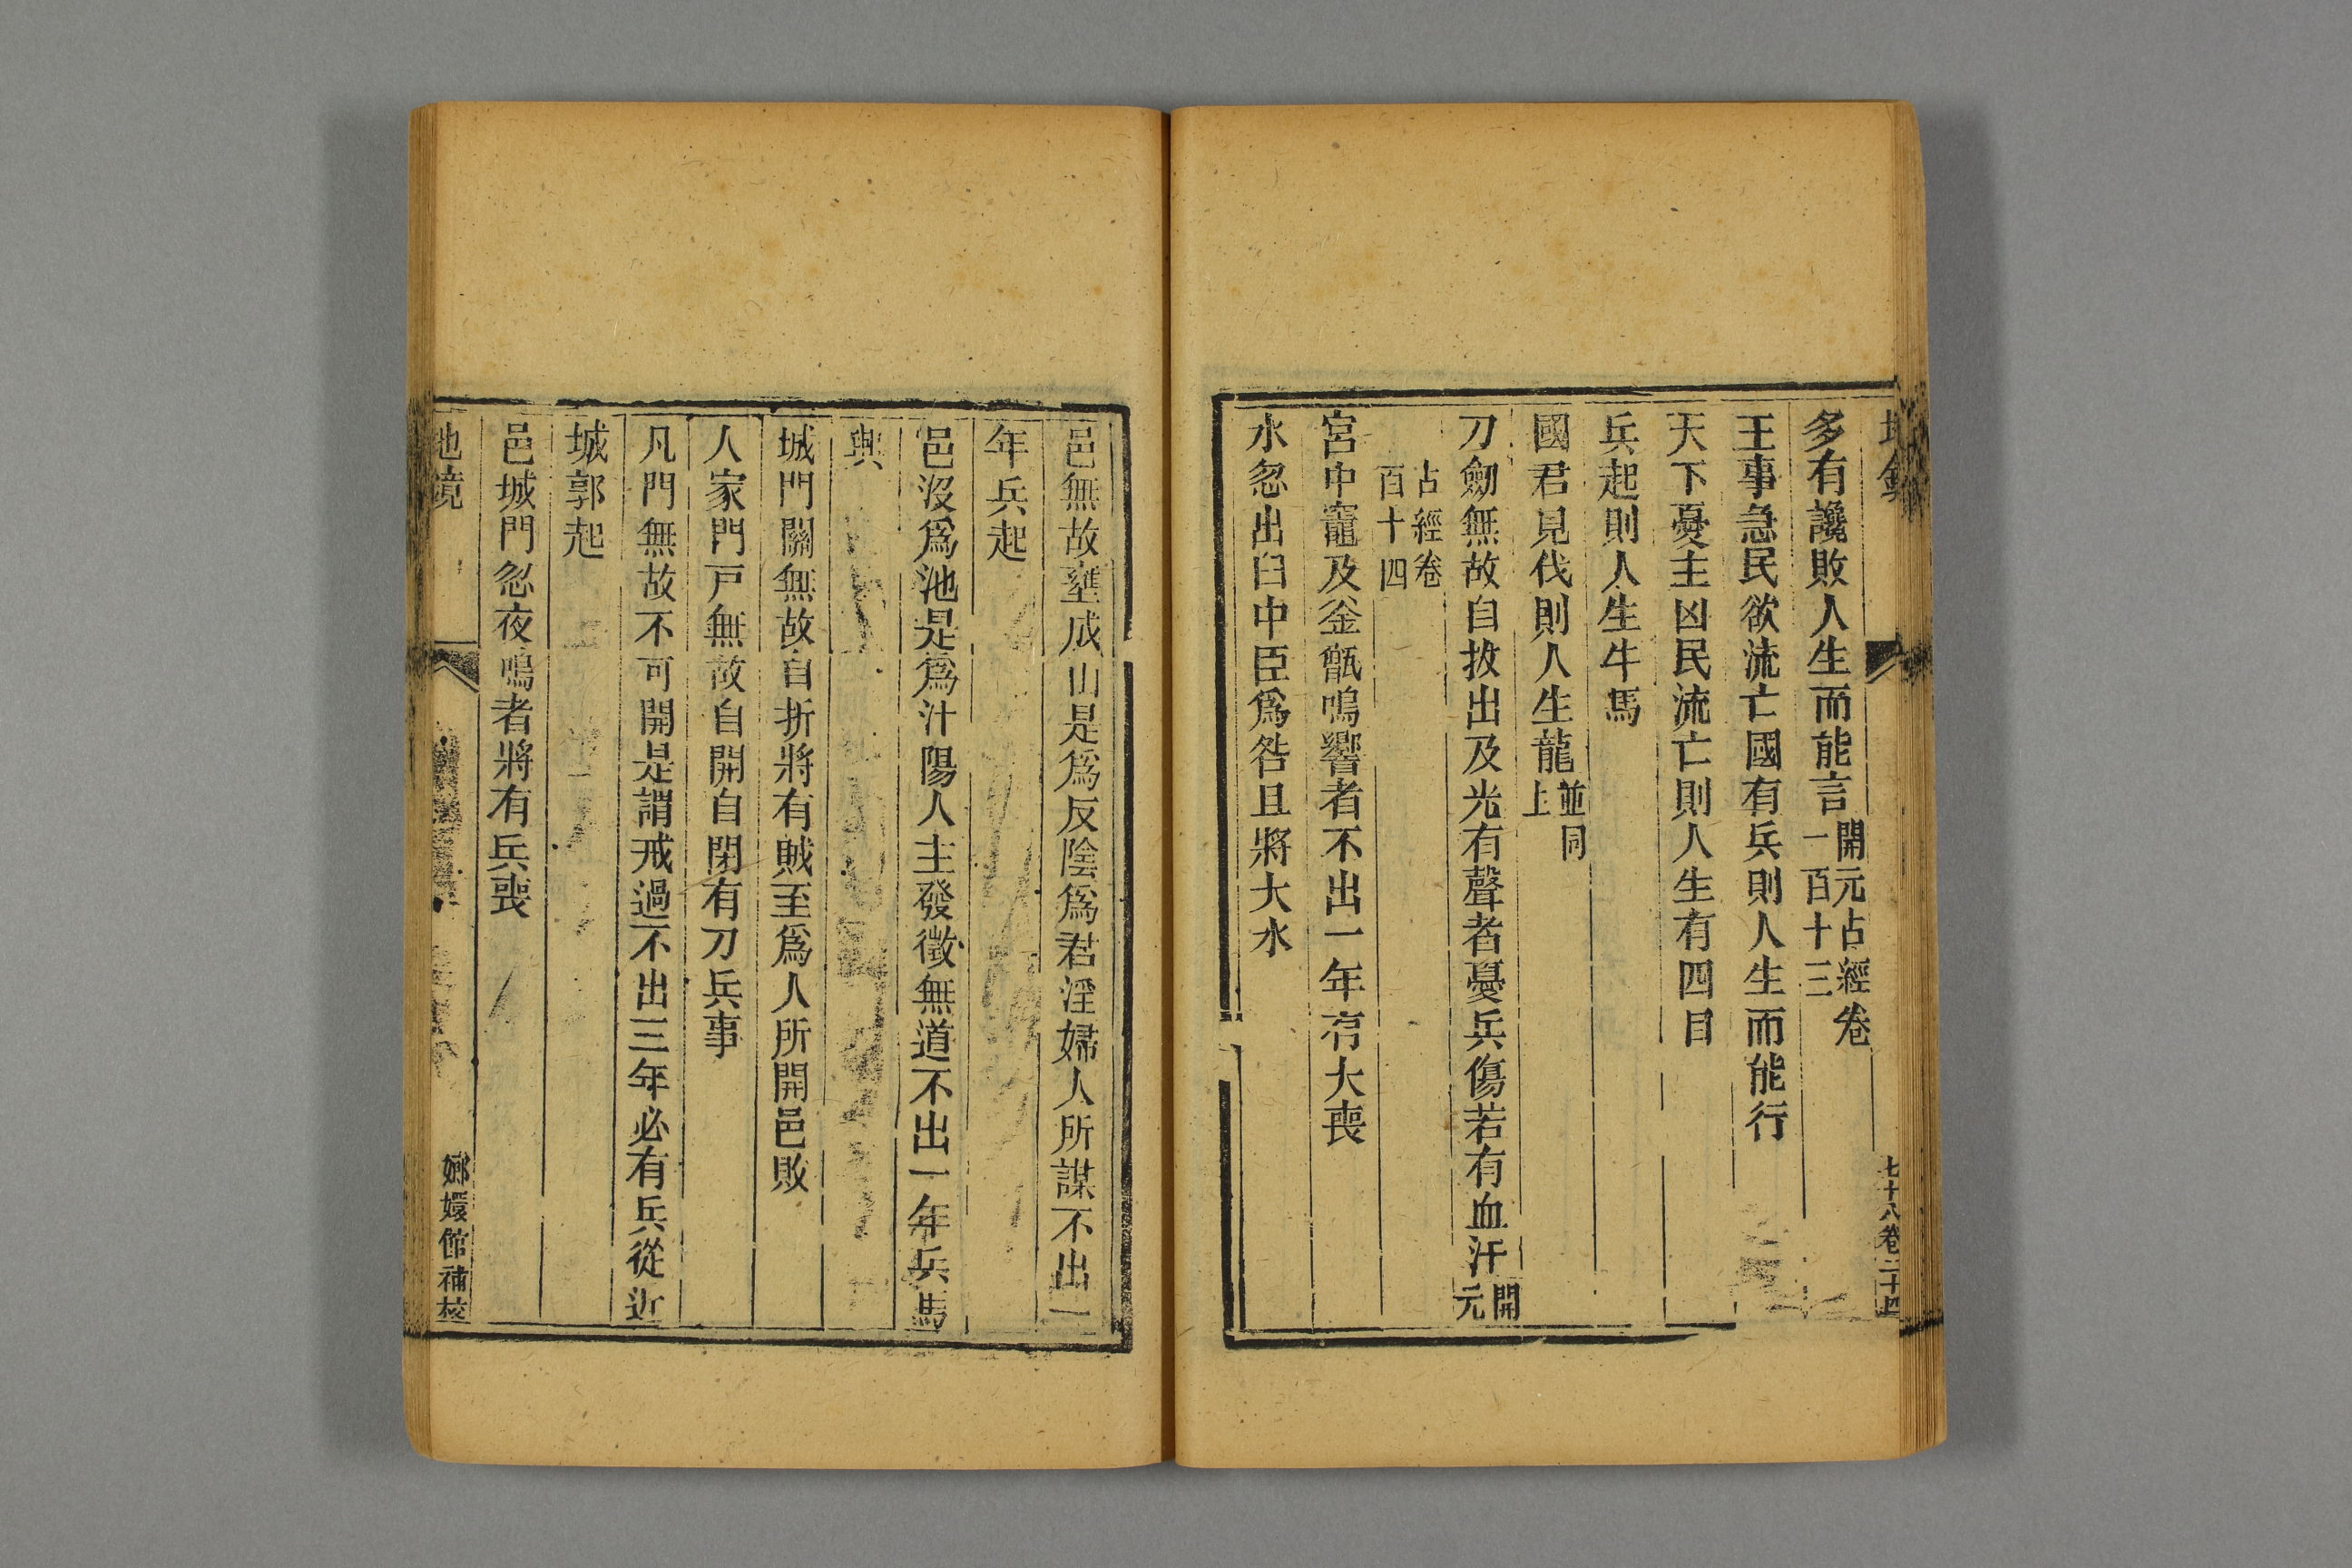 地鏡
七十八卷二十四
多有讒敗人生而能言開元占經卷一百十三
王事急民欲流亡國有兵則人生而能行
天下憂主凶民流亡則人生有四目
兵起則人生牛馬
國君見伐則人生龍並同上
刀劒無故自拔出及光有聲者憂兵傷若有血汗開元
占經卷百十四
宮中竈及釜甑鳴響者不出一年有大喪
水忽出臼中臣爲咎且將大水
邑無故壅成山是爲反陰爲君淫婦人所謀不出一
年兵起
邑沒爲池是爲汁陽人主發徵無道不出一年兵馬
興
城門關無故自折將有賊至爲人所開邑敗
人家門戸無故自開自閉有刀兵事
凡門無故不可開是謂戒過不出三年必有兵從近
城郭起
邑城門忽夜鳴者將有兵喪
地鏡
嫏嬛館補校